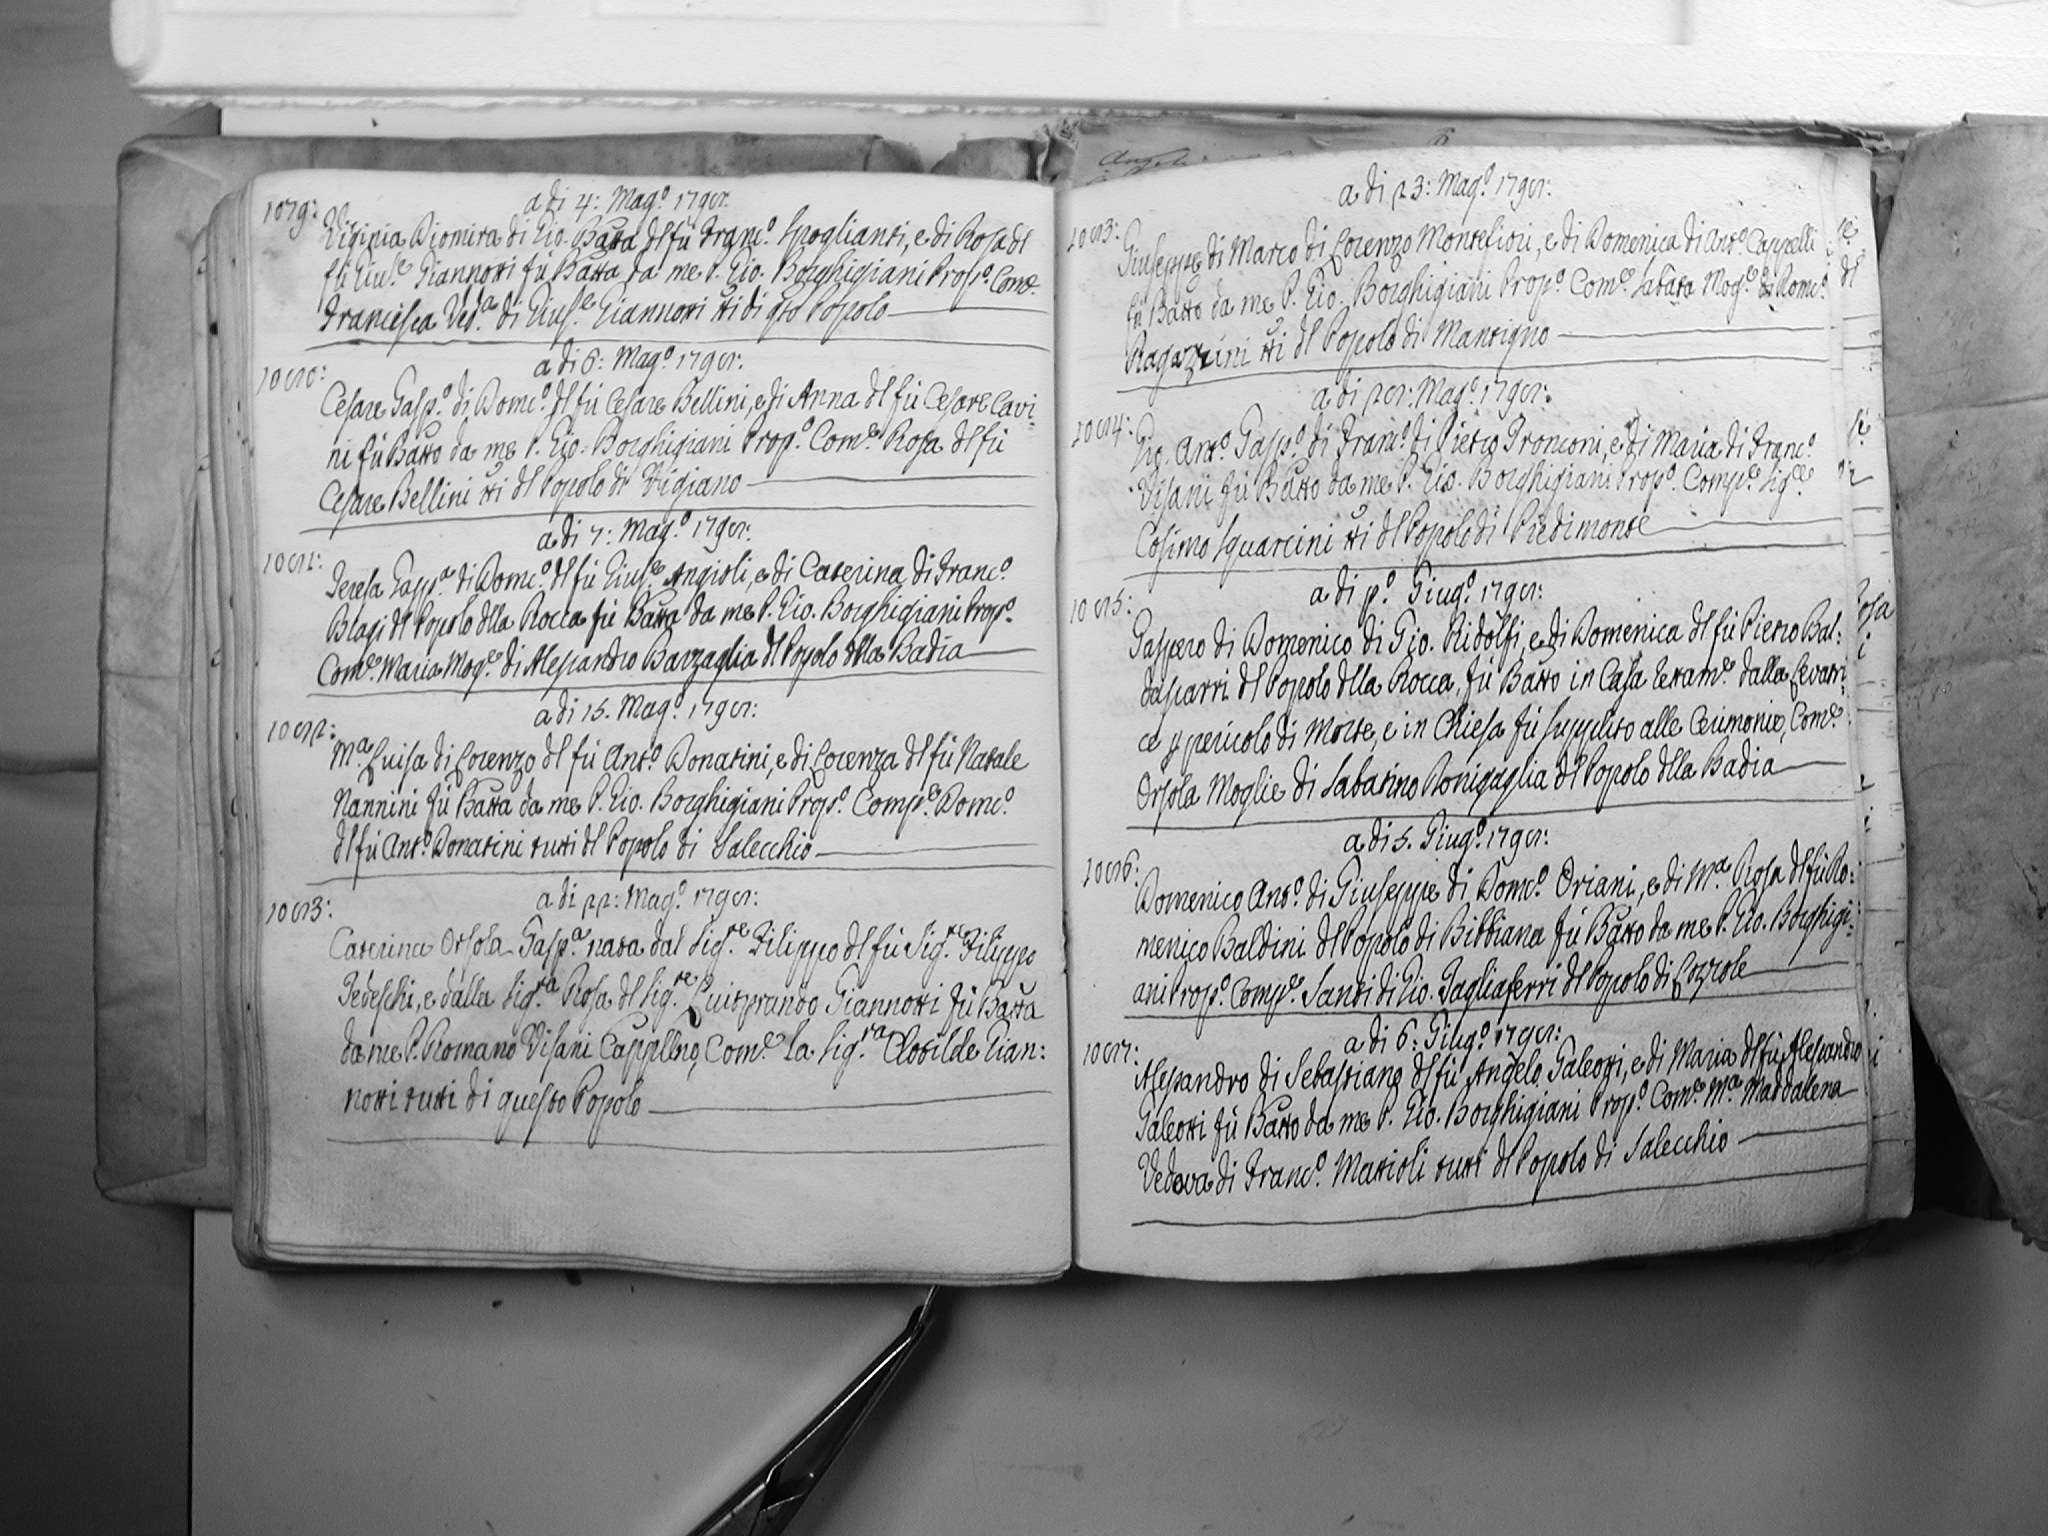 a di 4: Mag.º 1798:
1079: Virginia Diomira di Gio. Batta del fù Franc.º Spoglianti, e di Rosa del
fù Gius.e Giannotti fù Batta da me P. Gio. Borghigiani Prop.º Com.e
Francesca Ved.a di Gius.e Giannotti tti di qto Popolo
a di 6: Mag.º 1798:
1080: Cesare Gasp.º di Dom.co del fù Cesare Bellini, e di Anna del fù Cesare Cavi:
ni fù Batto da me P. Gio. Borghigiani Prop.º Com.e Rosa del fù
Cesare Bellini tti del Popolo di Vigiano
a di 7: Mag.º 1798:
1081: Teresa Gasp.a di Dom.co del fù Gius.e Angioli, e di Caterina di Franc.º
Blagi del Popolo della Rocca fù Batta da me P. Gio. Borghigiani Prop.º
Com.e Maria Mog.e di Alessandro Barzaglia del Popolo della Badia
a di 15. Mag.º 1798:
1082: M.a Luisa di Lorenzo del fù Ant.º Donatini, e di Lorenza del fù Natale
Nannini fù Batta da me P. Gio. Borghigiani Prop.º Comp.e Dom.co
del fù Ant.º Donatini tutti del Popolo di Salecchio
a di 22: Mag.º 1798:
1083: Caterina Orsola Gasp.a nata dal Sig.re Filippo del fù Sig.re Filippo
Tedeschi, e dalla Sig.ra Rosa del Sig.re Luitprando Giannotti fù Batta
da me P. Romano Visani Cappellno, Com.e la Sig.ra Clotilde Gian:
notti tutti di questo Popolo
a di 23: Mag.º 1798:
1083: Giuseppe di Marco di Lorenzo Montefiori, e di Domenica di Ant.º Cappelli
fù Batto da me P. Gio. Borghigiani Prop.º Com.e Sabata Mog.e di Dom.co
Ragazzini tti del Popolo di Mantigno
a di 28: Mag.º 1798:
1084: Gio. Ant.º Gasp.º di Franc.º di Pietro Tronconi, e di Maria di Franc.º
Visani fù Batto da me P. Gio. Borghigiani Prop.º Comp.e
Cosimo Squarcini tti del Popolo di Piedimonte
a di p.º Giug.º 1798:
1085: Gaspero di Domenico di Gio. Ridolfi, e di Domenica del fù Pietro Bal:
dascarri del Popolo della Rocca, fù Batto in Casa dalla Levatri:
ce p pericolo di Morte, e in Chiesa fù supplito alle Cerimonie, Com.e
Orsola Moglie di Sabatino Ronigaglia del Popolo della Badia
a di 5. Giug.º 1798:
1086: Domenico Ant.º di Giuseppe di Dom.co Oriani, e di M.a Rosa del fù Do:
menico Baldini del Popolo di Bibbiana fù Batto da me P. Gio. Borghigi:
ani Prop.º Comp.e Santi di Gio. Tagliaferri del Popolo di Lozzole
a di 6: Giug.º 1798:
1087: Alessandro di Sebastiano del fù Angelo Galeotti, e di Maria del fù Alessandro
Galeotti fù Batto da me P. Gio. Borghigiani Prop.º Com.e M.a Maddalena
Vedova di Franc.º Mattioli tutti del Popolo di Salecchio